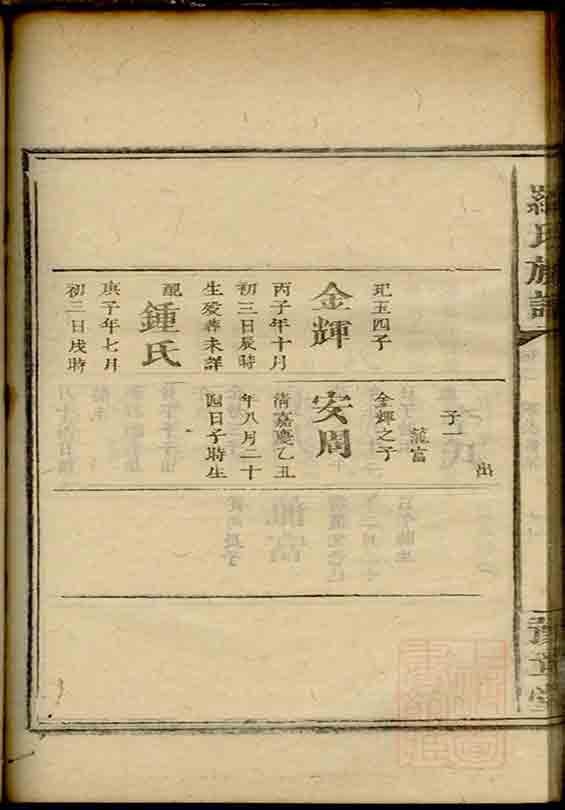 羅氏族譜
豫章堂
玘玉四子
金輝
丙子年十月
初三日辰時
生歿葬未詳
配
鍾氏
庚子年七月
初三日戌時
出
子一
龍富
金輝之子
安周
清嘉慶乙丑
年八月二十
四日子時生